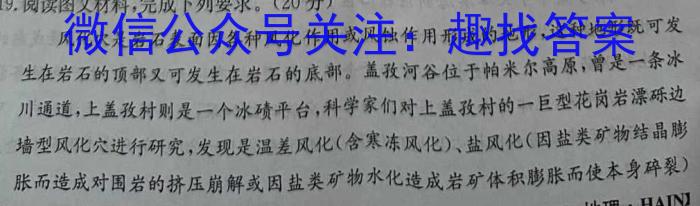 19.阅读图文材料,完成下列要求。(20分)
微信公众号关注:趣找答案
风化穴是岩石表面因各种风化作用或风蚀作用形成的地形,这种地形既可发
生在岩石的顶部又可发生在岩石的底部。盖孜河谷位于帕米尔高原,曾是一条冰
川通道,上盖孜村则是一个冰碛平台,科学家们对上盖孜村的一巨型花岗岩漂砾边
墙型风化穴进行研究,发现是温差风化(含寒冻风化)、盐风化(因盐类矿物结晶膨
胀而造成对围岩的挤压崩解或因盐类矿物水化造成岩矿体积膨胀而使本身碎裂)
地理·HAINI